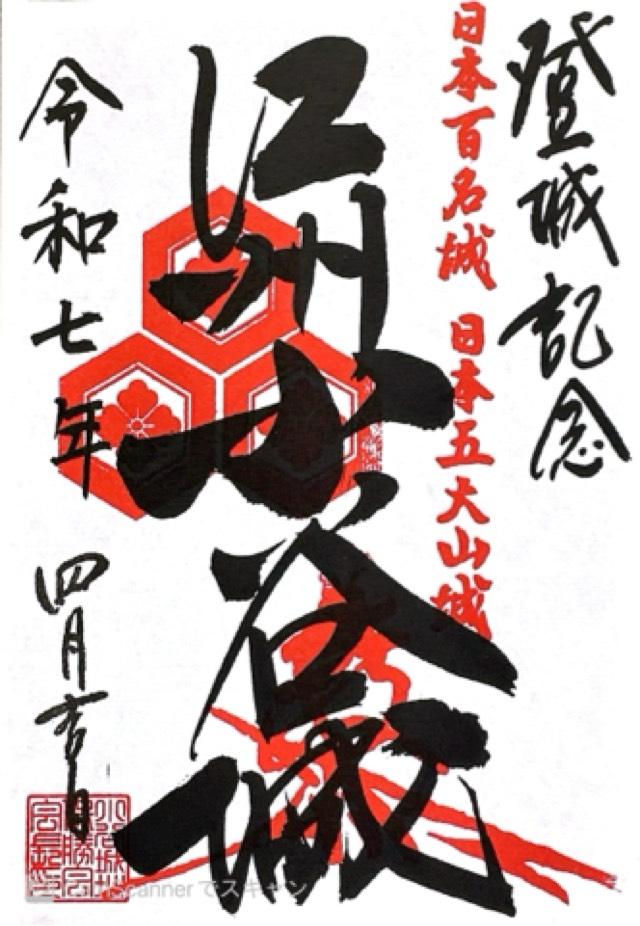 登城記念
日本百名城 日本五大山城
江州小谷城
令和七年 四月吉日
Scannerでスキャン